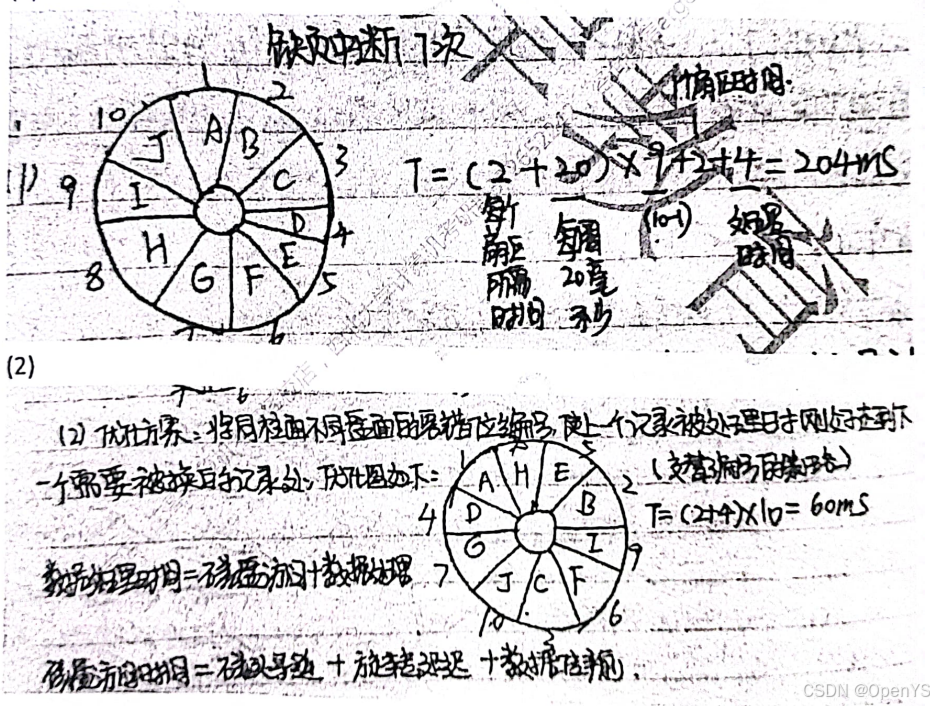 缺页中断7次
1个扇区时间.
1)
1
2
3
4
5
6
7
8
9
10
A
B
C
D
E
F
G
H
I
J
T = (2+20)×9+2+4 = 204ms
每个
扇区
间隔
时间
每圈
20毫
秒
(10-1)
处理
时间
(2)
(2) 优化方案:将同柱面不同盘面的错位编号,使上一个记录被处理时刚好到下
一个需要被换的记录处,优化图如下:
(交替编号的策略)
T=(2+4)×10=60ms
1
8
5
2
9
6
3
10
7
4
A
H
E
B
I
F
C
J
G
D
数据处理时间=磁盘访问+数据处理
磁盘访问时间=磁头寻道+旋转延迟+数据传输.
CSDN @OpenYS